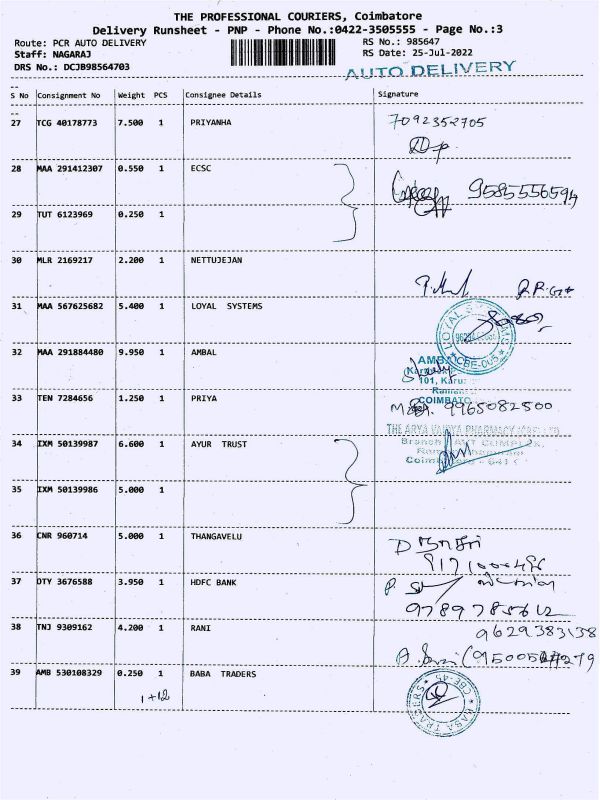 THE PROFESSIONAL COURIERS, Coimbatore
Delivery Runsheet - PNP - Phone No.:0422-3505555 - Page No.:3
Route: PCR AUTO DELIVERY
RS No.: 985647
Staff: NAGARAJ
RS Date: 25-Jul-2022
DRS No.: DCJB98564703
AUTO DELIVERY
S No Consignment No Weight PCS Consignee Details Signature
27 TCG 40178773 7.500 1 PRIYANHA 7092352705
28 MAA 291412307 0.550 1 ECSC 9585556594
29 TUT 6123969 0.250 1
30 MLR 2169217 2.200 1 NETTUJEJAN
31 MAA 567625682 5.400 1 LOYAL SYSTEMS
CBE-005
32 MAA 291884480 9.950 1 AMBAL
101, Karu
COIMBATO
33 TEN 7284656 1.250 1 PRIYA 9965082500
THE ARYA VAIDYA PHARMACY
Branch
34 IXM 50139987 6.600 1 AYUR TRUST
35 IXM 50139986 5.000 1
36 CNR 960714 5.000 1 THANGAVELU
37 DTY 3676588 3.950 1 HDFC BANK
9789785612
38 TNJ 9309162 4.200 1 RANI 9629383138
39 AMB 530108329 0.250 1 BABA TRADERS
1+12
BABA TRADERS CBE-45